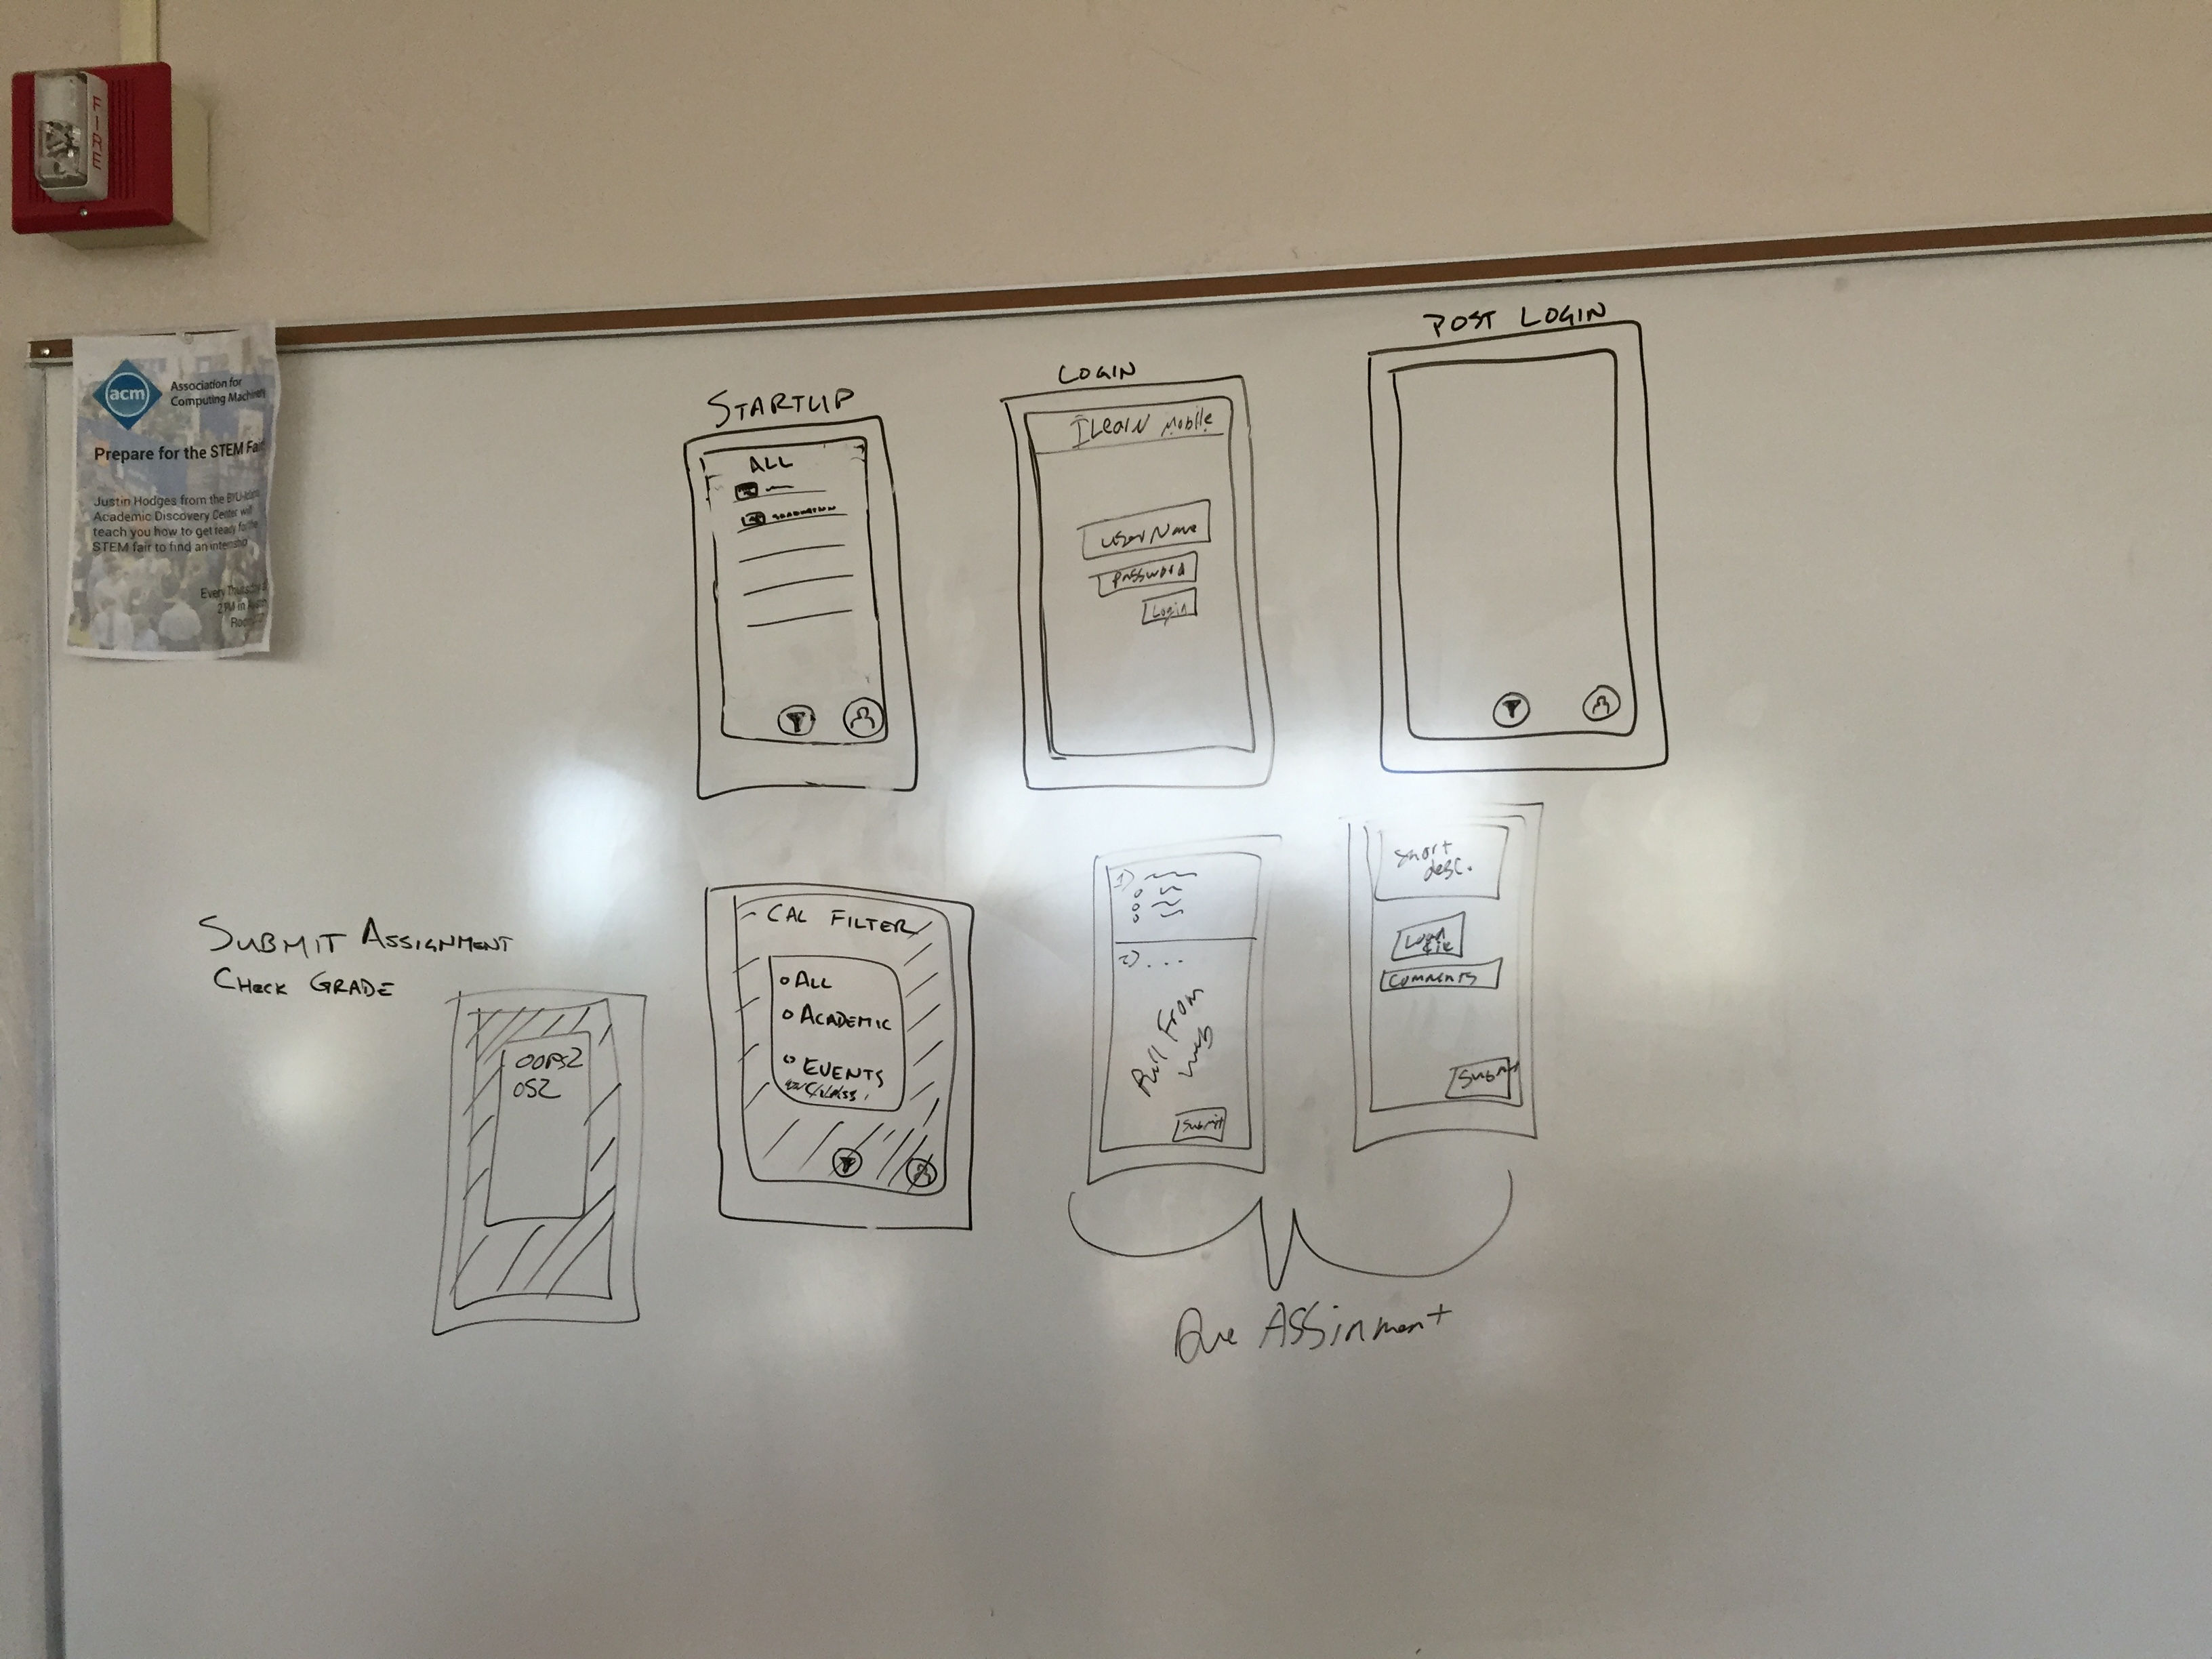 FIRE
acm
Association for
Computing Machinery
Prepare for the STEM Fair
Justin Hodges from the BYU-Idaho
Academic Discovery Center will
teach you how to get ready for the
STEM fair to find an internship
Every Thursday
2PM in
Room
STARTUP
ALL
GRADUATION
LOGIN
ILearn Mobile
UserName
Password
Login
POST LOGIN
SUBMIT ASSIGNMENT
CHECK GRADE
OOPS2
OS2
CAL FILTER
ALL
ACADEMIC
EVENTS
1)
2) ...
Pull From
web
Submit
short
desc.
file
COMMENTS
Submit
Due ASSinment